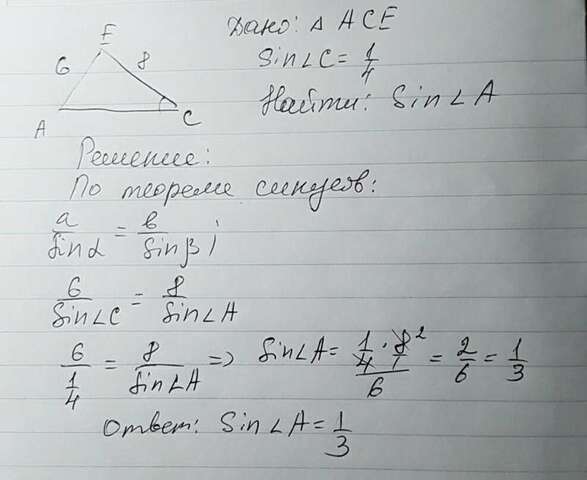 E
6 8
A C
Дано: △ ACE
Sin∠C = 1/4
Найти: Sin∠A
Решение:
По теореме синусов:
a/sinα = b/sinβ ;
6/Sin∠C = 8/Sin∠A
6/(1/4) = 8/Sin∠A => Sin∠A = (1/4 · 8/1 ²)/6 = 2/6 = 1/3
Ответ: Sin∠A = 1/3